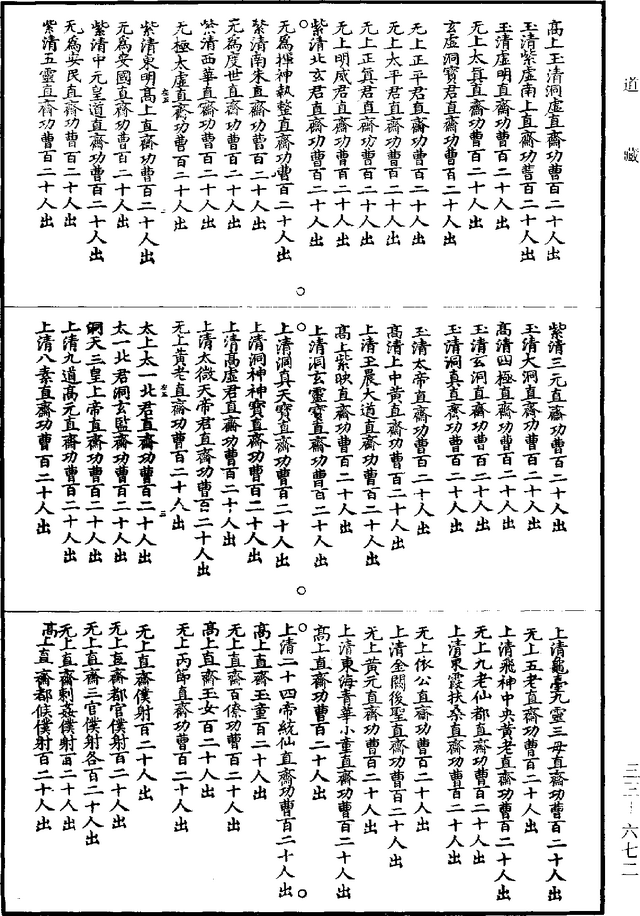 道藏
高上玉清洞虛直齋功曹百二十人出
玉清紫虛南上直齋功曹百二十人出
玉清虛明直齋功曹百二十人出
无上太真直齋功曹百二十人出
玄虛洞寶君直齋功曹百二十人出
无上正平君直齋功曹百二十人出
无上太平君直齋功曹百二十人出
无上正真君直齋功曹百二十人出
无上明威君直齋功曹百二十人出
紫清北玄君直齋功曹百二十人出
无為撣神執整直齋功曹百二十人出
紫清南朱直齋功曹百二十人出
无為度世直齋功曹百二十人出
紫清西華直齋功曹百二十人出
无極太虛直齋功曹百二十人出
紫清東明高上直齋功曹百二十人出
无為安國直齋功曹百二十人出
紫清中元皇道直齋功曹百二十人出
无為安民直齋功曹百二十人出
紫清五靈直齋功曹百二十人出
紫清三元直齋功曹百二十人出
玉清大洞直齋功曹百二十人出
高清四極直齋功曹百二十人出
玉清玄洞直齋功曹百二十人出
玉清洞真直齋功曹百二十人出
玉清太帝直齋功曹百二十人出
高清上中黃直齋功曹百二十人出
上清玉晨大道直齋功曹百二十人出
高上紫映直齋功曹百二十人出
上清洞玄靈寶直齋功曹百二十人出
上清洞真天寶直齋功曹百二十人出
上清洞神神寶直齋功曹百二十人出
上清高虛君直齋功曹百二十人出
上清太微天帝君直齋功曹百二十人出
无上黃老直齋功曹百二十人出
太上太一北君直齋功曹百二十人出
太一北君洞玄監齋功曹百二十人出
洞天三皇上帝直齋功曹百二十人出
上清九道高元直齋功曹百二十人出
上清八素直齋功曹百二十人出
上清龜臺九靈三母直齋功曹百二十人出
无上五老直齋功曹百二十人出
上清飛神中央黃老直齋功曹百二十人出
无上九老仙都直齋功曹百二十人出
上清東霞扶桑直齋功曹百二十人出
无上依公直齋功曹百二十人出
上清金闕後聖直齋功曹百二十人出
无上黃元直齋功曹百二十人出
上清東海青華小童直齋功曹百二十人出
高上直齋功曹百二十人出
上清二十四帝統仙直齋功曹百二十人出
高上直齋玉童百二十人出
无上直齋百傣功曹百二十人出
高上直齋玉女百二十人出
无上丙節直齋功曹百二十人出
无上直齋僕射百二十人出
无上直齋都官僕射百二十人出
无上直齋三官僕射各百二十人出
无上直齋刺姦僕射百二十人出
高上直齋都候僕射百二十人出
三二—六七二